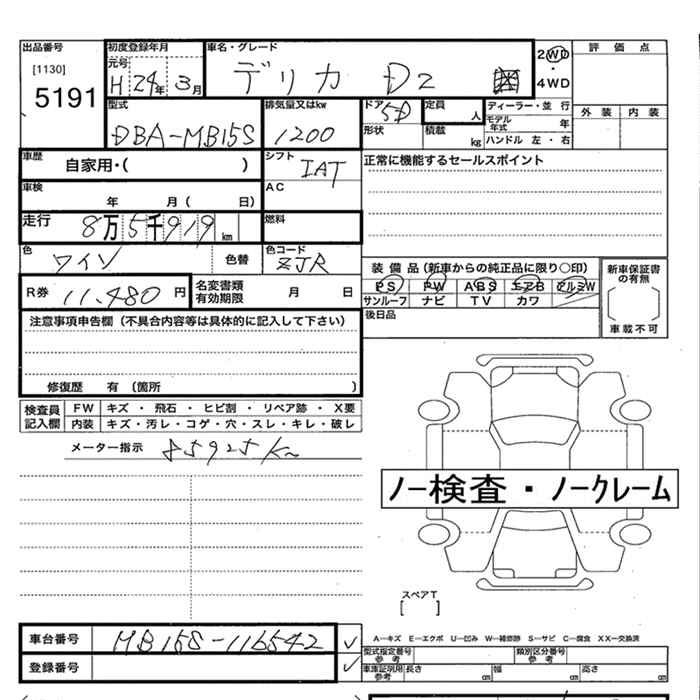 出品番号 初度登録年月 車名・グレード 2WD ・ 4WD 評価点
[1130] 元号
5191 H 24年 3月 デリカ D2
型式 排気量又はkw ドア 5D 定員 人 ディーラー・並行 外装 内装
DBA-MB15S 1200 形状 積載 kg モデル年式 年
ハンドル 左・右
車歴 自家用・( ) シフト IAT 正常に機能するセールスポイント
車検 年 月( 日) AC
走行 8万5千919 km 燃料
色 ワイン 色替 色コード ZJR
装備品(新車からの純正品に限り○印) 新車保証書の有無
PS PW ABS エアB アルミW
サンルーフ ナビ TV カワ
後日品 車載不可
R券 11,480円 名変書類有効期限 月 日
注意事項申告欄(不具合内容等は具体的に記入して下さい)
修復歴 有(箇所 )
検査員記入欄 FW キズ・飛石・ヒビ割・リペア跡・X要
内装 キズ・汚レ・コゲ・穴・スレ・キレ・破レ
メーター指示 85925Km
ノー検査・ノークレーム
スペアT
[ ]
車台番号 MB15S-116542 ✓
登録番号 ✓
A―キズ E―エクボ U―凹み W―補修跡 S―サビ C―腐食 XX―交換済
型式指定番号 参考 類別区分番号 参考
車庫証明用 参考 長さ cm 幅 cm 高さ cm